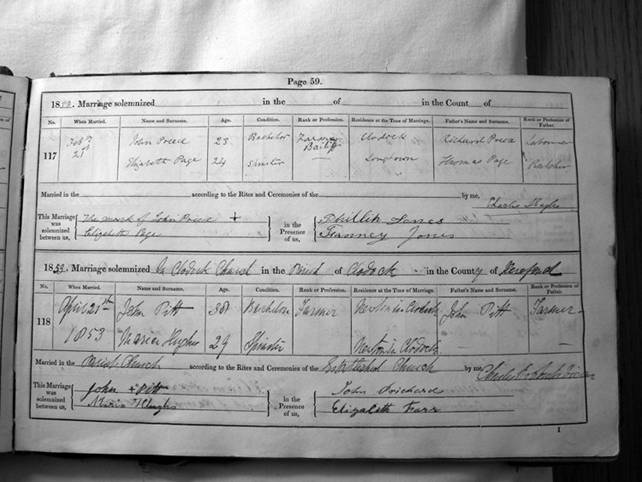 Page 59.
18 . Marriage solemnized in the of in the Count of
No. When Married. Name and Surname. Age. Condition. Rank or Profession. Residence at the Time of Marriage. Father's Name and Surname. Rank or Profession of Father.
117 John Preece 23 Bachelor Farmers Bailiff Clodock Richard Preece
Elizabeth Page 24 Spinster — Longtown Thomas Page
Married in the according to the Rites and Ceremonies of the by me,
This Marriage was solemnized between us, The mark of John Preece + in the Presence of us, Phillip James
Elizabeth Page Fanney Jones
18 . Marriage solemnized in Clodock Church in the Parish of Clodock in the County Hereford
No. When Married. Name and Surname. Age. Condition. Rank or Profession. Residence at the Time of Marriage. Father's Name and Surname. Rank or Profession of Father.
118 April 21st John Pitt Bachelor Farmer Newton in Clodock John Pitt Farmer
1853 Maria Hughes 29 Spinster Newton in Clodock
Married in the Parish Church according to the Rites and Ceremonies of the Established Church by me
This Marriage was solemnized between us, John + Pitt in the Presence of us, John Prichard
Maria Hughes Elizabeth Farr